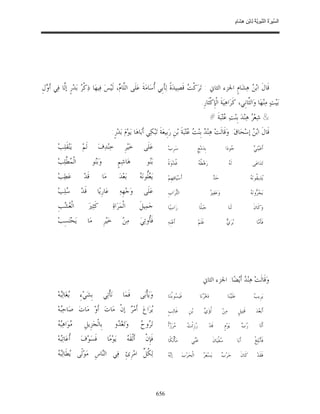 السِّيرَةُ النَّبَوِيَّةُ لِابْنِ هِشَامٍ
قَالَ ابْنُ هِشَامٍ الجزء الثاني : تَرَكْتُ قَصِيدَةً لِأَبِي أُسَامَةَ عَلَى اللَّامِ، لَيْسَ فِيهَا ذِكْرُ بَدْرٍ إلَّا فِي أَوَّلِ
بَيْتٍ مِنْهَا وَالثَّانِي، كَرَاهِيَةَ الْإِكْثَارِ.
& شِعْرُ هِنْدَ بِنْتِ عُتْبَةَ #
قَالَ ابْنُ إسْحَاقَ: وَقَالَتْ هِنْدُ بِنْتُ عُتْبَةَ بْنِ رَبِيعَةَ تَبْكِي أَبَاهَا يَوْمَ بَدْرٍ
أَعَيْنَيَّ جُودَا بِدَمْعٍ سَرِبْ عَلَى خَيْرِ خِنْدِفَ لَمْ يَنْقَلِبْ
تَدَاعَى لَهُ رَهْطُهُ غُدْوَةً بَنُو هَاشِمٍ وَبَنُو الْمُطَّلِبْ
يُذِيقُونَهُ حَدَّ أَسْيَافِهِمْ يَعُلُّونَهُ بَعْدَ مَا قَدْ عَطِبْ
يَجُرُّونَهُ وَعَفِيرُ التُّرَابِ عَلَى وَجْهِهِ عَارِيًا قَدْ سُلِبْ
وَكَانَ لَنَا جَبَلًا رَاسِيًا جَمِيلَ الْمَرَاةِ كَثِيرَ الْعُشُبْ
فَأَمَّا بُرَيٌّ فَلَمْ أَعْنِهِ فَأُوتِيَ مِنْ خَيْرِ مَا يَحْتَسِبْ
وَقَالَتْ هِنْدُ أَيْضًا: الجزء الثاني
يَرِيبُ عَلَيْنَا دَهْرُنَا فَيَسُوءُنَا وَيَأْبَى فَمَا نَأْتِي بِشَيْءٍ يُغَالِبُهْ
أَبَعْدَ قَتِيلٍ مِنْ لُؤَيِّ بْنِ غَالِبٍ يُرَاعُ امْرُؤٌ إنْ مَاتَ أَوْ مَاتَ صَاحِبُهْ
أَلَا رُبَّ يَوْمٍ قَدْ رُزِئْتُ مُرَزَّأً تَرُوحُ وَتَغْدُو بِالْجَزِيلِ مَوَاهِبُهْ
فَأَبْلِغْ أَبَا سُفْيَانَ عَنِّي مَأْلُكًا فَإِنْ أَلْقَهُ يَوْمًا فَسَوْفَ أُعَاتِبُهْ
فَقَدْ كَانَ حَرْبٌ يَسْعَرُ الْحَرْبَ إنَّهُ لِكُلِّ امْرِئٍ فِي النَّاسِ مَوْلًى يُطَالِبُهْ
656